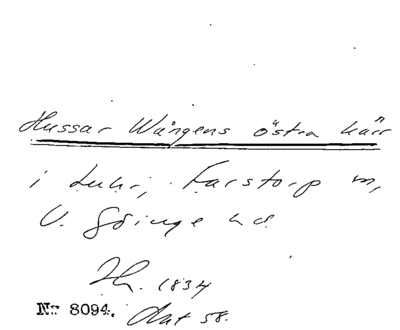 Hussar Wångens östra kärr
i Luhr, Farstorp m,
V. Göinge hd
1834
Nr 8094. Dat 58.